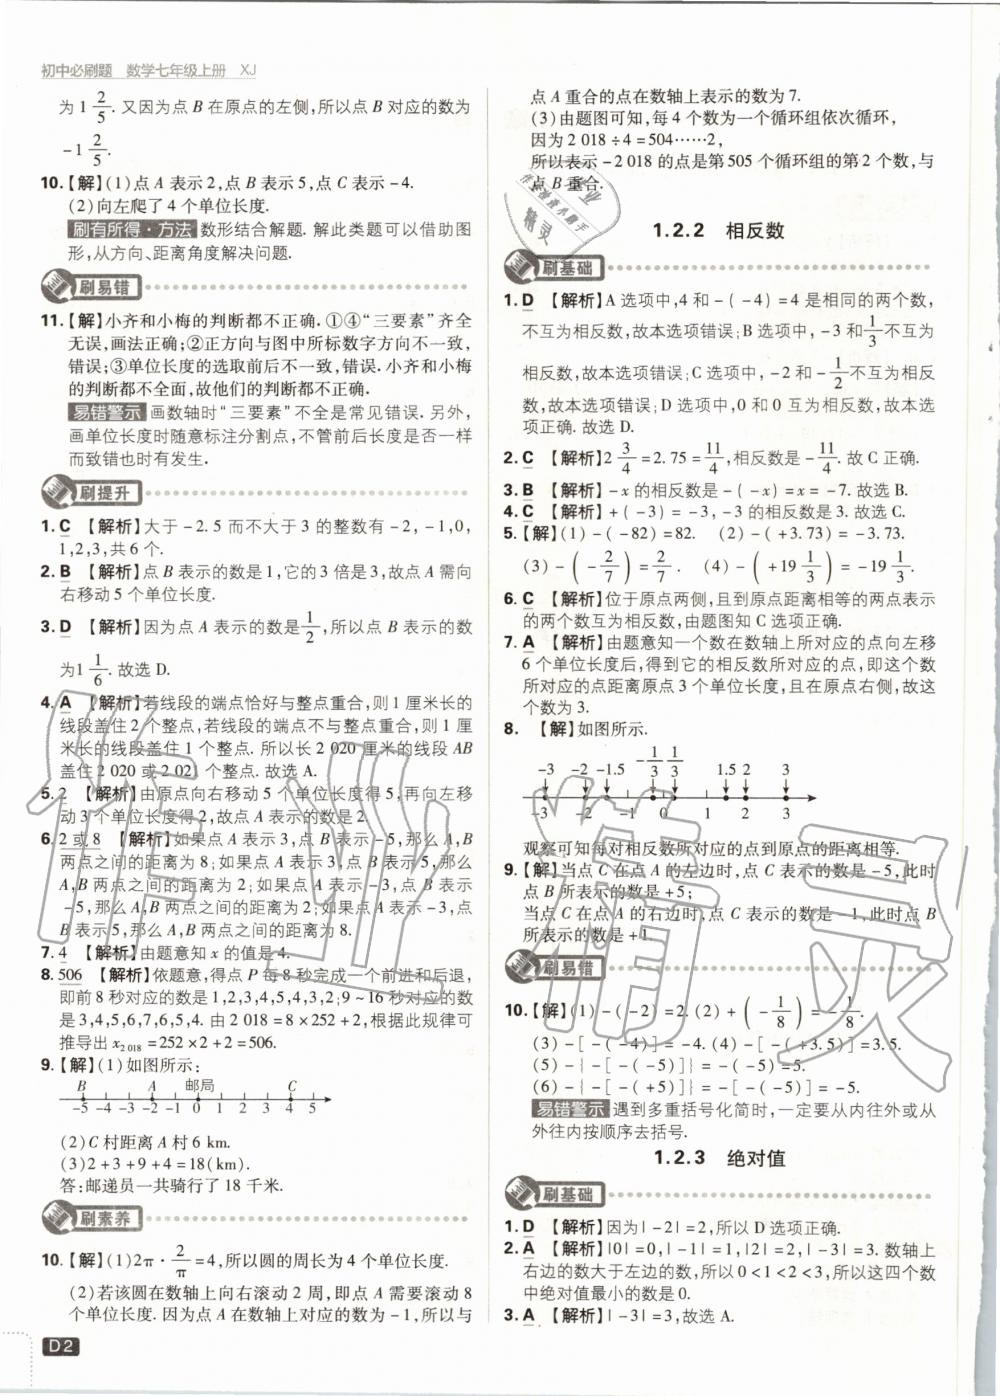 初中必刷题 数学七年级上册 XJ
为 1 2/5. 又因为点 B 在原点的左侧,所以点 B 对应的数为
-1 2/5.
10.【解】(1)点 A 表示 2,点 B 表示 5,点 C 表示 -4.
(2)向左爬了 4 个单位长度.
刷有所得·方法 数形结合解题. 解此类题可以借助图
形,从方向、距离角度解决问题.
刷易错
11.【解】小齐和小梅的判断都不正确.①④“三要素”齐全
无误,画法正确;②正方向与图中所标数字方向不一致,
错误;③单位长度的选取前后不一致,错误. 小齐和小梅
的判断都不全面,故他们的判断都不正确.
易错警示 画数轴时“三要素”不全是常见错误. 另外,
画单位长度时随意标注分割点,不管前后长度是否一样
而致错也时有发生.
刷提升
1. C 【解析】大于 -2.5 而不大于 3 的整数有 -2, -1,0,
1,2,3,共 6 个.
2. B 【解析】点 B 表示的数是 1,它的 3 倍是 3,故点 A 需向
右移动 5 个单位长度.
3. D 【解析】因为点 A 表示的数是 1/2,所以点 B 表示的数
为1 1/6. 故选 D.
4. A 【解析】若线段的端点恰好与整点重合,则 1 厘米长的
线段盖住 2 个整点,若线段的端点不与整点重合,则 1 厘
米长的线段盖住 1 个整点. 所以长 2 020 厘米的线段 AB
盖住 2 020 或 2 021 个整点. 故选 A.
5. 2 【解析】由原点向右移动 5 个单位长度得 5,再向左移
动 3 个单位长度得 2,故点 A 表示的数是 2.
6. 2 或 8 【解析】如果点 A 表示 3,点 B 表示 -5,那么 A,B
两点之间的距离为 8;如果点 A 表示 3,点 B 表示 5,那么
A,B 两点之间的距离为 2;如果点 A 表示 -3,点 B 表示
-5,那么 A,B 两点之间的距离为 2;如果点 A 表示 -3,点
B 表示 5,那么 A,B 两点之间的距离为 8.
7. 4 【解析】由题意知 x 的值是 4.
8. 506 【解析】依题意,得点 P 每 8 秒完成一个前进和后退,
即前 8 秒对应的数是 1,2,3,4,5,4,3,2;9 ~ 16 秒对应的数
是 3,4,5,6,7,6,5,4. 由 2 018 = 8 × 252 + 2,根据此规律可
推导出 x2 018 = 252 × 2 + 2 = 506.
9.【解】(1)如图所示:
B A 邮局 C
-5 -4 -3 -2 -1 0 1 2 3 4 5
(2) C 村距离 A 村 6 km.
(3)2 + 3 + 9 + 4 = 18(km).
答:邮递员一共骑行了 18 千米.
刷素养
10.【解】(1)2π · 2/π = 4,所以圆的周长为 4 个单位长度.
(2)若该圆在数轴上向右滚动 2 周,即点 A 需要滚动 8
个单位长度. 因为点 A 在数轴上对应的数为 -1,所以与
D2
点 A 重合的点在数轴上表示的数为 7.
(3)由题图可知,每 4 个数为一个循环组依次循环,
因为 2 018 ÷ 4 = 504……2,
所以表示 -2 018 的点是第 505 个循环组的第 2 个数,与
点 B 重合.
1.2.2 相反数
刷基础
1. D 【解析】A 选项中,4 和 -( -4) = 4 是相同的两个数,
不互为相反数,故本选项错误;B 选项中, -3 和 1/3 不互为
相反数,故本选项错误;C 选项中, -2 和 -1/2 不互为相反
数,故本选项错误;D 选项中,0 和 0 互为相反数,故本选
项正确. 故选 D.
2. C 【解析】2 3/4 = 2.75 = 11/4,相反数是 -11/4. 故 C 正确.
3. B 【解析】-x 的相反数是 -( -x) = x = -7. 故选 B.
4. C 【解析】+( -3) = -3, -3 的相反数是 3. 故选 C.
5.【解】(1) -( -82) = 82. (2) -( +3.73) = -3.73.
(3) -( -2/7) = 2/7. (4) -( +19 1/3) = -19 1/3.
6. C 【解析】位于原点两侧,且到原点距离相等的两点表示
的两个数互为相反数,由题图知 C 选项正确.
7. A 【解析】由题意知一个数在数轴上所对应的点向左移
6 个单位长度后,得到它的相反数所对应的点,即这个数
所对应的点距离原点 3 个单位长度,且在原点右侧,故这
个数为 3.
8. 【解】如图所示.
-3 -2 -1.5 -1/3 1/3 1.5 2 3
-3 -2 -1 0 1 2 3
观察可知每对相反数所对应的点到原点的距离相等.
9.【解】当点 C 在点 A 的左边时,点 C 表示的数是 -5,此时
点 B 所表示的数是 +5;
当点 C 在点 A 的右边时,点 C 表示的数是 -1,此时点 B
所表示的数是 +1.
刷易错
10.【解】(1) -( -2) = 2. (2) +( -1/8) = -1/8.
(3) -[ -( -4)] = -4. (4) -[ -( +3.5)] = 3.5.
(5) -{ -[ -( -5)]} = -[ -( +5)] = 5.
(6) -{ -[ -( +5)]} = -[ -( -5)] = -5.
易错警示 遇到多重括号化简时,一定要从内往外或从
外往内按顺序去括号.
1.2.3 绝对值
刷基础
1. D 【解析】因为| -2| = 2,所以 D 选项正确.
2. A 【解析】|0| = 0,| -1| = 1,|2| = 2,| -3| = 3. 数轴上
右边的数大于左边的数,所以 0 < 1 < 2 < 3,所以这四个数
中绝对值最小的数是 0.
3. A 【解析】| -3| = 3,故选 A.
作业精灵